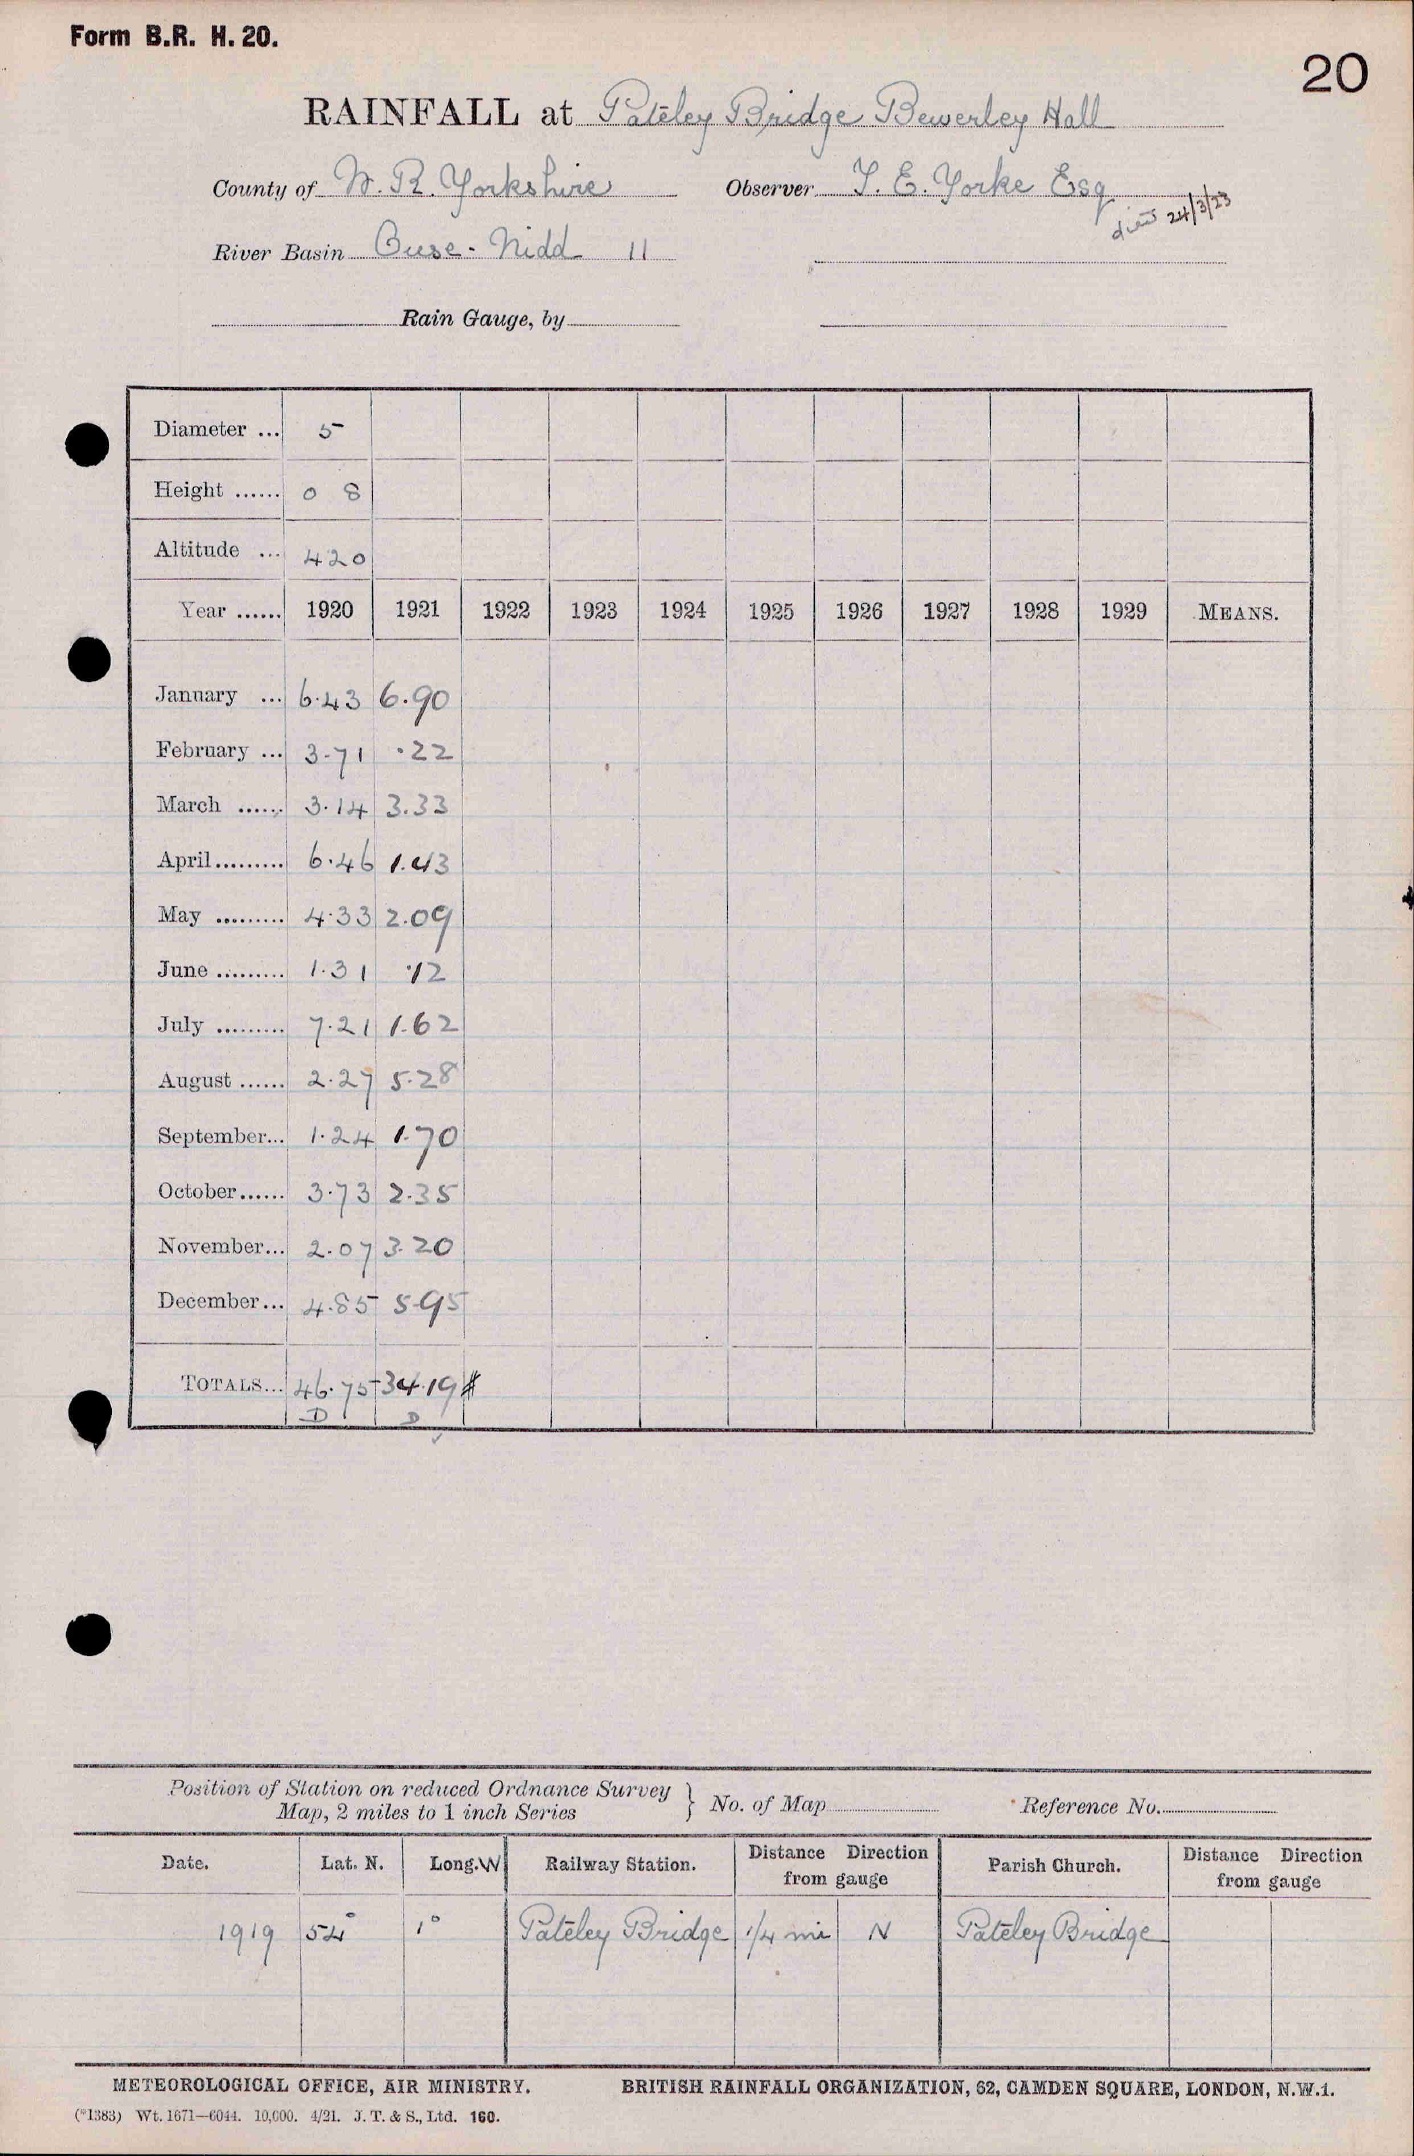 Form B.R. H. 20.
20
RAINFALL at Pateley Bridge Bewerley Hall
County of W. R. Yorkshire Observer T. E. Yorke Esq
died 24/3/23
River Basin Ouse - Nidd 11
Rain Gauge, by
Diameter ... 5
Height ...... 0 8
Altitude ... 420
Year ...... 1920 1921 1922 1923 1924 1925 1926 1927 1928 1929 MEANS.
January ... 6.43 6.90
February ... 3.71 .22
March ...... 3.14 3.33
April ......... 6.46 1.43
May ......... 4.33 2.09
June ......... 1.31 .12
July ......... 7.21 1.62
August ...... 2.27 5.28
September... 1.24 1.70
October...... 3.73 2.35
November... 2.07 3.20
December... 4.85 5.95
TOTALS... 46.75 34.19 #
D D
Position of Station on reduced Ordnance Survey
Map, 2 miles to 1 inch Series } No. of Map Reference No.
Date. Lat. N. Long. W Railway Station. Distance Direction from gauge Parish Church. Distance Direction from gauge
1919 54° 1° Pateley Bridge 1/4 mi N Pateley Bridge
METEOROLOGICAL OFFICE, AIR MINISTRY. BRITISH RAINFALL ORGANIZATION, 62, CAMDEN SQUARE, LONDON, N.W.1.
(*1383) Wt. 1671—6044. 10,000. 4/21. J. T. & S., Ltd. 160.